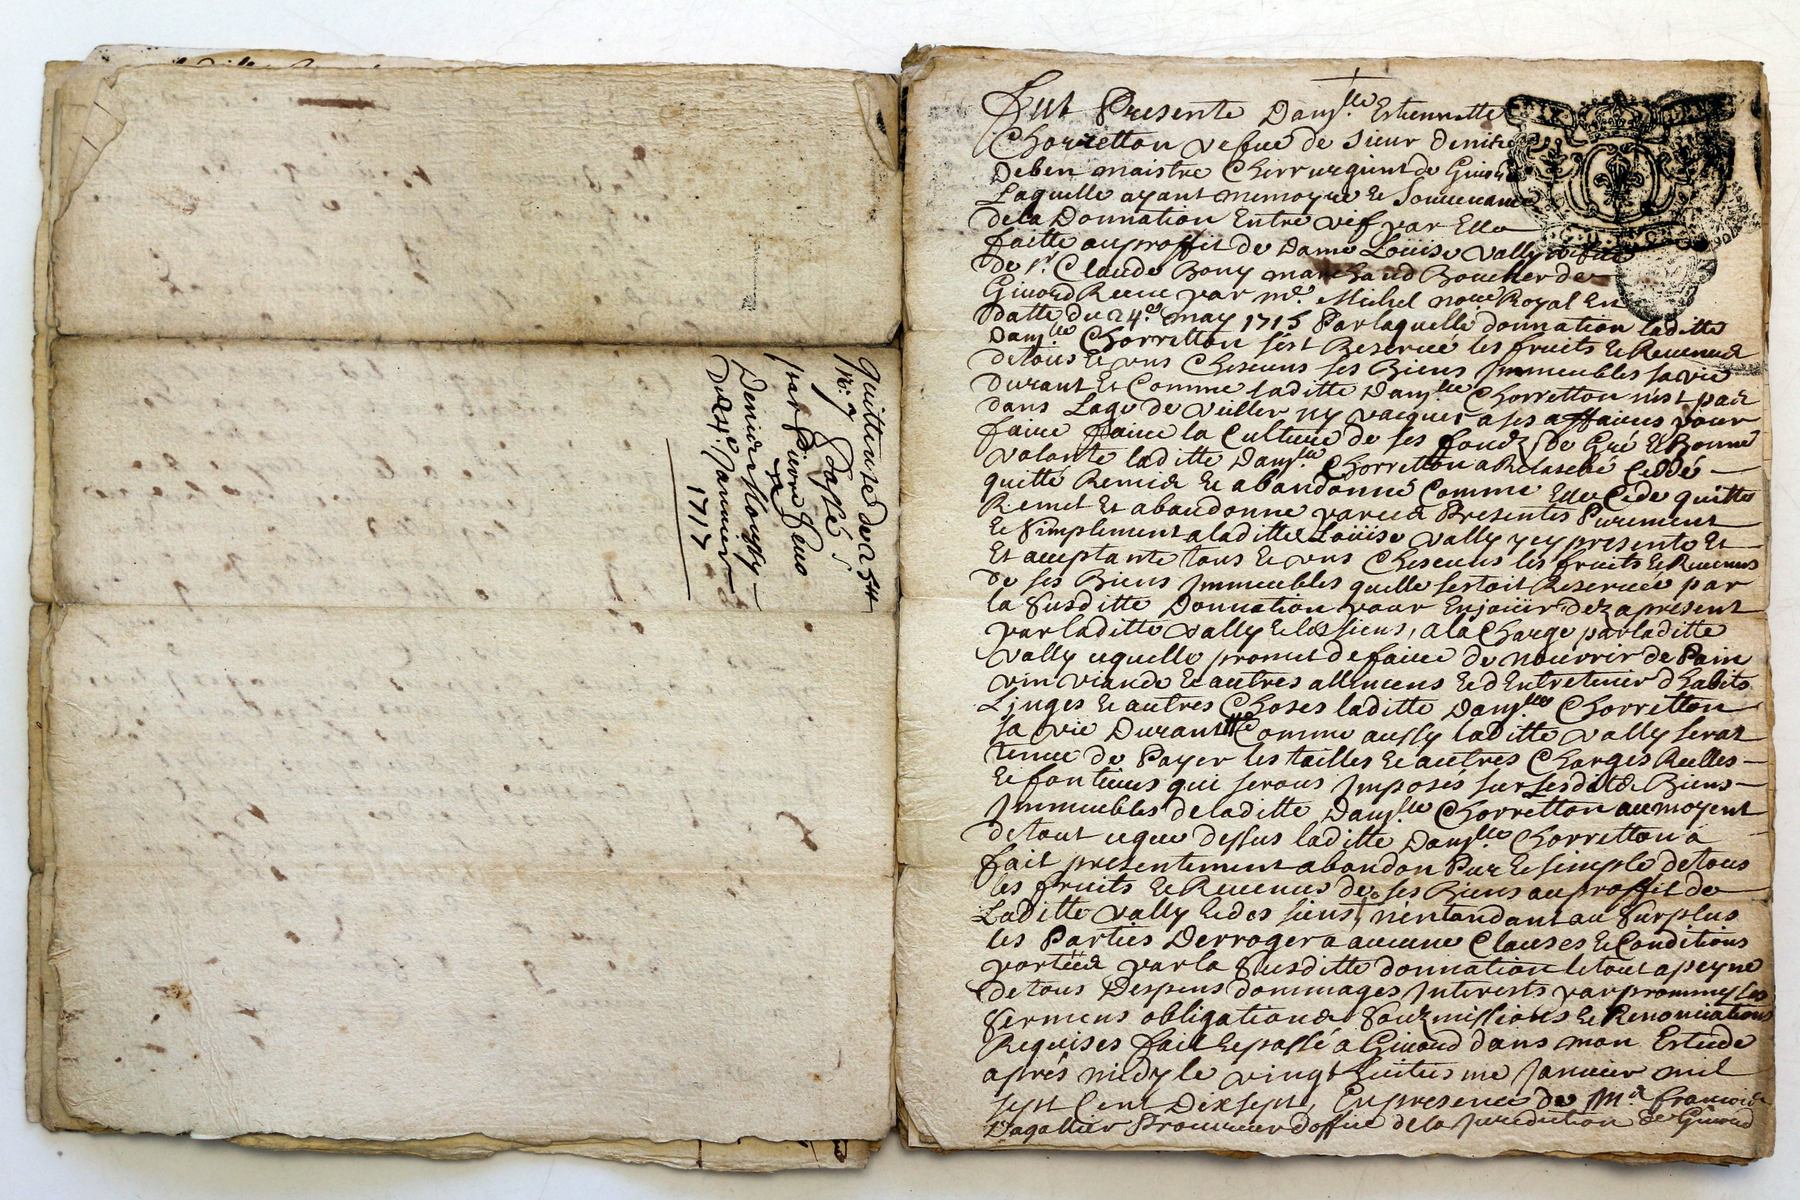 quittance de 25#
par Pierre
Denis
Du 24e. Janvier
1717
Fut Presente Damlle Estiennette
Chorretton vefue de Sieur
maistre Chirrurgient de Givord
Laquelle ayant memoyre et Souuenance
de la Donnation Entre vif par Elle
faitte au proffit de Dame Louise Vally
de Sr. Claude Bony marchand Boucher de
Givord Receu par me. Michel nore Royal En
datte du 24e. may 1715 Par laquelle donnation laditte
Damlle Chorretton sest Reservé les fruits et Revenus
de tous et vns Chescuns ses Biens Immeubles sa vie
Durant Et Comme laditte Damlle Chorretton nest pas
dans Lage de veiller ny vacquer a ses affaires pour
faire faire la Culture de ses fondz de Gré et Bonne
volonte laditte Damlle Chorretton a Relasché Ceddé
quitté Remis et abandonné Comme Elle Cede quitte
Remet Et abandonne par ces Presentes Purement
et Simplement a laditte Loüise Vally ycy presente Et
Et acceptante tous et vns Chescuns les fruits et Revenus
de ses Biens Immeubles quelle sestoit Reservée par
la Susditte Donnation pour En joüir dez apresent
par laditte Vally et les siens, a la Charge par laditte
Vally ce quelle promet de faire de nourrir de Pain
vin viande et autres allimens et d Entretenir d habits
Linges et autres Choses laditte Damlle Chorretton
sa vie Durant Comme aussy laditte Vally serat
tenue de Payer les tailles et autres Charges Reelles
et qui serons Imposés sur Biens
Immeubles de laditte Damlle Chorretton au moyent
de tout ce que dessus laditte Damlle Chorretton a
fait presentement abandon Pur et simple de tous
les fruits et Revenus de ses Biens au proffit de
Laditte Vally et des siens, n'entandant au Surplus
les Parties Derroger a aucune Clauses et Conditions
portées par la Susditte donnation le tout a peyne
de tous Despens dommages Interests par
Sermens obligations Soumissions et Renonciations
Requises fait et passé a Givord dans mon Estude
aprés midy le vingt huitiesme Janvier mil
sept Cent Dix sept, En presence de Me francois
Procureur d office de la Juridiction de Givord